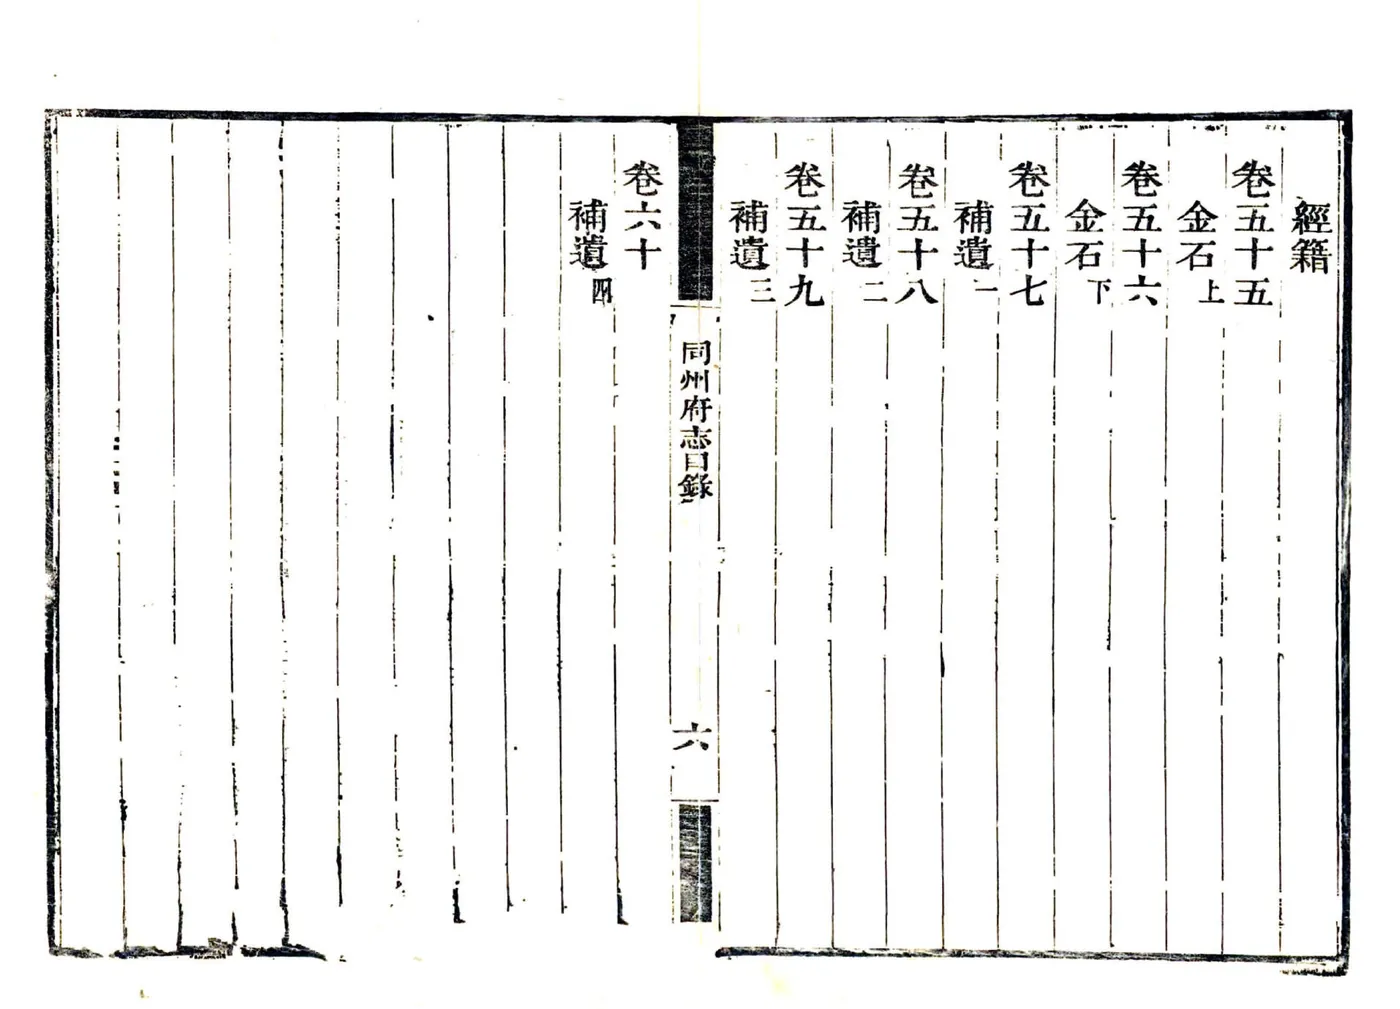 經籍
卷五十五
金石上
卷五十六
金石下
卷五十七
補遺一
卷五十八
補遺二
卷五十九
補遺三
同州府志目錄
六
卷六十
補遺四